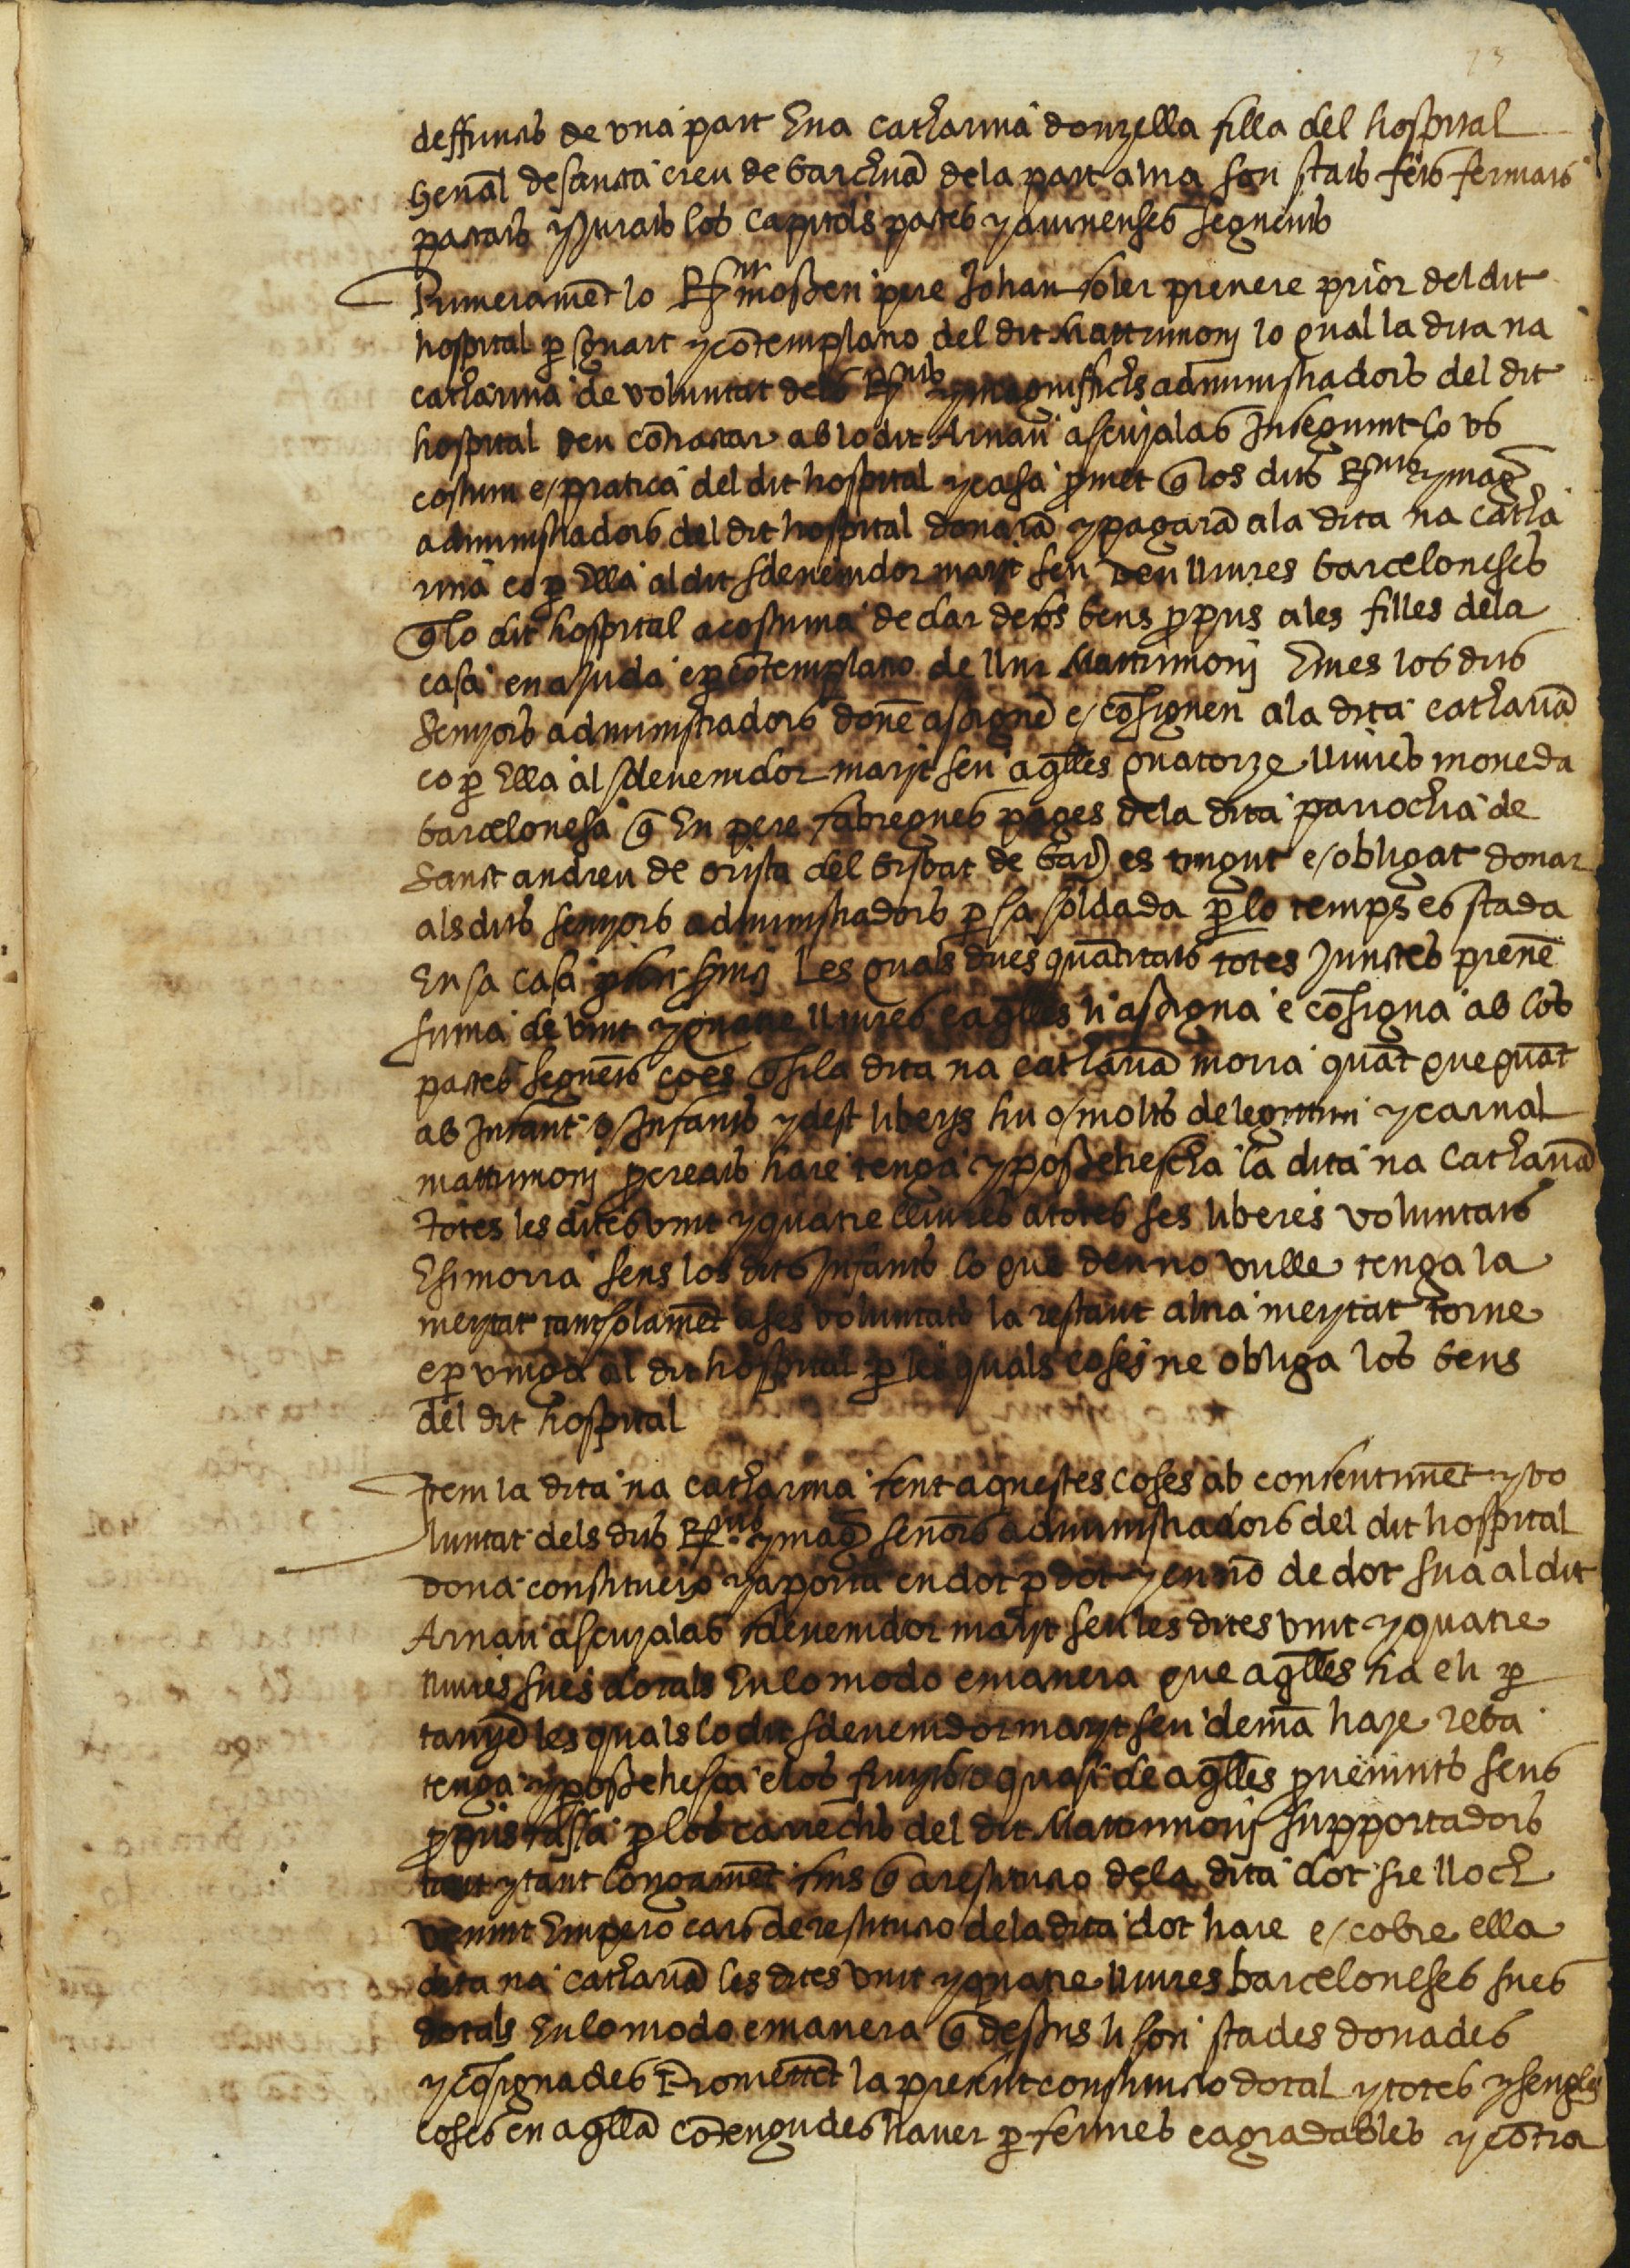 73
deffuncts de vna part Ena Catharina donzella filla del hospital
Genāl de sancta creu de barchnā dela part altra son stats fets fermats
pactats y jurats los Capitols pactes y auinenses seguents
Primeramēt lo Rnt mossen pere Johan soler preuere prior del dit
hospital p̄ sguart y cōtemplatio del dit Mattrimonj lo qual la dita na
catharina de voluntat dels Rnts y magnifichs administradors del dit
hospital deu cōtractar ab lo dit Arnau ascujalas Inseguint lo vs
costum e/ pratica del dit hospital y casa p̄met q̄ los dits Rnts y mag.
administradors del dit hospital donarā y pagarā ala dita na catha
rina eo p̄ Ella al dit sdeuenidor marit seu deu lliures barceloneses
q̄ lo dit hospital acostuma de dar dels bens p̄pris ales filles dela
casa en ajuda e p̄ cōtemplatio de llur Mattrimonj E mes los dits
Senyors administradors donē assignē e/ cōsignen ala dita catharīa
eo p̄ Ella al sdeuenidor marit seu aq̄lles quatorze lliures moneda
barcelonesa q̄ En pere fabregues pages dela dita parrochia de
Sanct andreu de orista del bisbat de bar) es tingut e/ obligat donar
als dits senyors administradors p̄ sa soldada p̄ lo temps es stada
En sa casa Les quals dues quātitats totes Junctes prenē
suma de vint y quatre lliures e aq̄lles li assigna e cōsigna ab los
pactes seguēts ço es q̄ si la dita na catharīa morra quāt que quāt
ab Infant o/ Infants ydest liberys hu o/ molts de legittim y carnal
mattrimonj p̄creats hare tenga y possehescha la dita na Catharīa
totes les dites vint y quatre lliures a totes ses liberes voluntats
E si morra sens los dits Infants lo que deu no vulle tenga la
meytat tant solamēt a ses voluntats la restant altra meytat torne
e p̄ vinga al dit hospital p̄ les quals coses ne obliga los bens
del dit hospital
Item la dita na catharina fent aquestes coses ab consentimēt y vo
luntat dels dits Rnts y mag. senōrs administradors del dit hospital
dona constitueix y aporta en dot p̄ dot y en nō de dot sua al dit
Arnau ascujalas sdeuenidor marit seu les dites vint y quatre
lliures sues dotals En lo modo e manera que aq̄lles ha e li p̄
tanyē les quals lo dit sdeuenidor marit seu demā haje reba
tenga y possehesca e los fruyts o quasi de aq̄lles p̄uenints sens
p̄pris fassa p̄ los carrechs del dit Mattrimonj supportadors
tant y tant longamēt fins q̄ a restitutio dela dita dot sie lloch
venint Empero cars de restitutio dela dita dot hare e/ cobre ella
dita na catharīa les dites vint y quatre lliures barceloneses sues
dotals En lo modo e manera q̄ dessus li son stades donades
y cōsignades Promettēt la present constitutio dotal y totes y sengles
coses en aq̄lla cōtengudes hauer p̄ fermes e agradables y cōtra